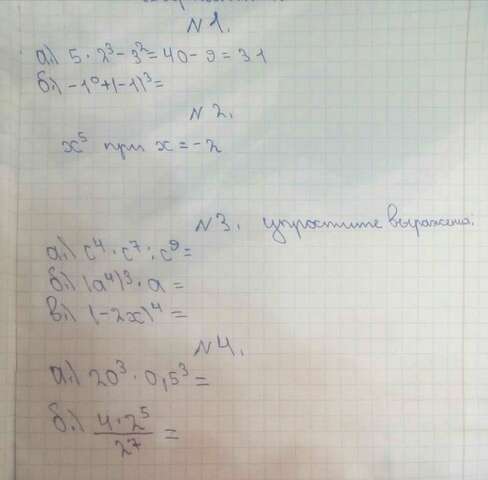 №1.
а.) 5 · 2³ - 3² = 40 - 9 = 31
б.) -1⁰ + (-1)³ =
№2.
x⁵ при x = -2
№3. упростите выражения.
а.) c⁴ · c⁷ : c⁹ =
б.) (a⁴)³ · a =
в.) (-2x)⁴ =
№4.
а.) 20³ · 0,5³ =
б.) 4 · 2⁵ / 2⁷ =